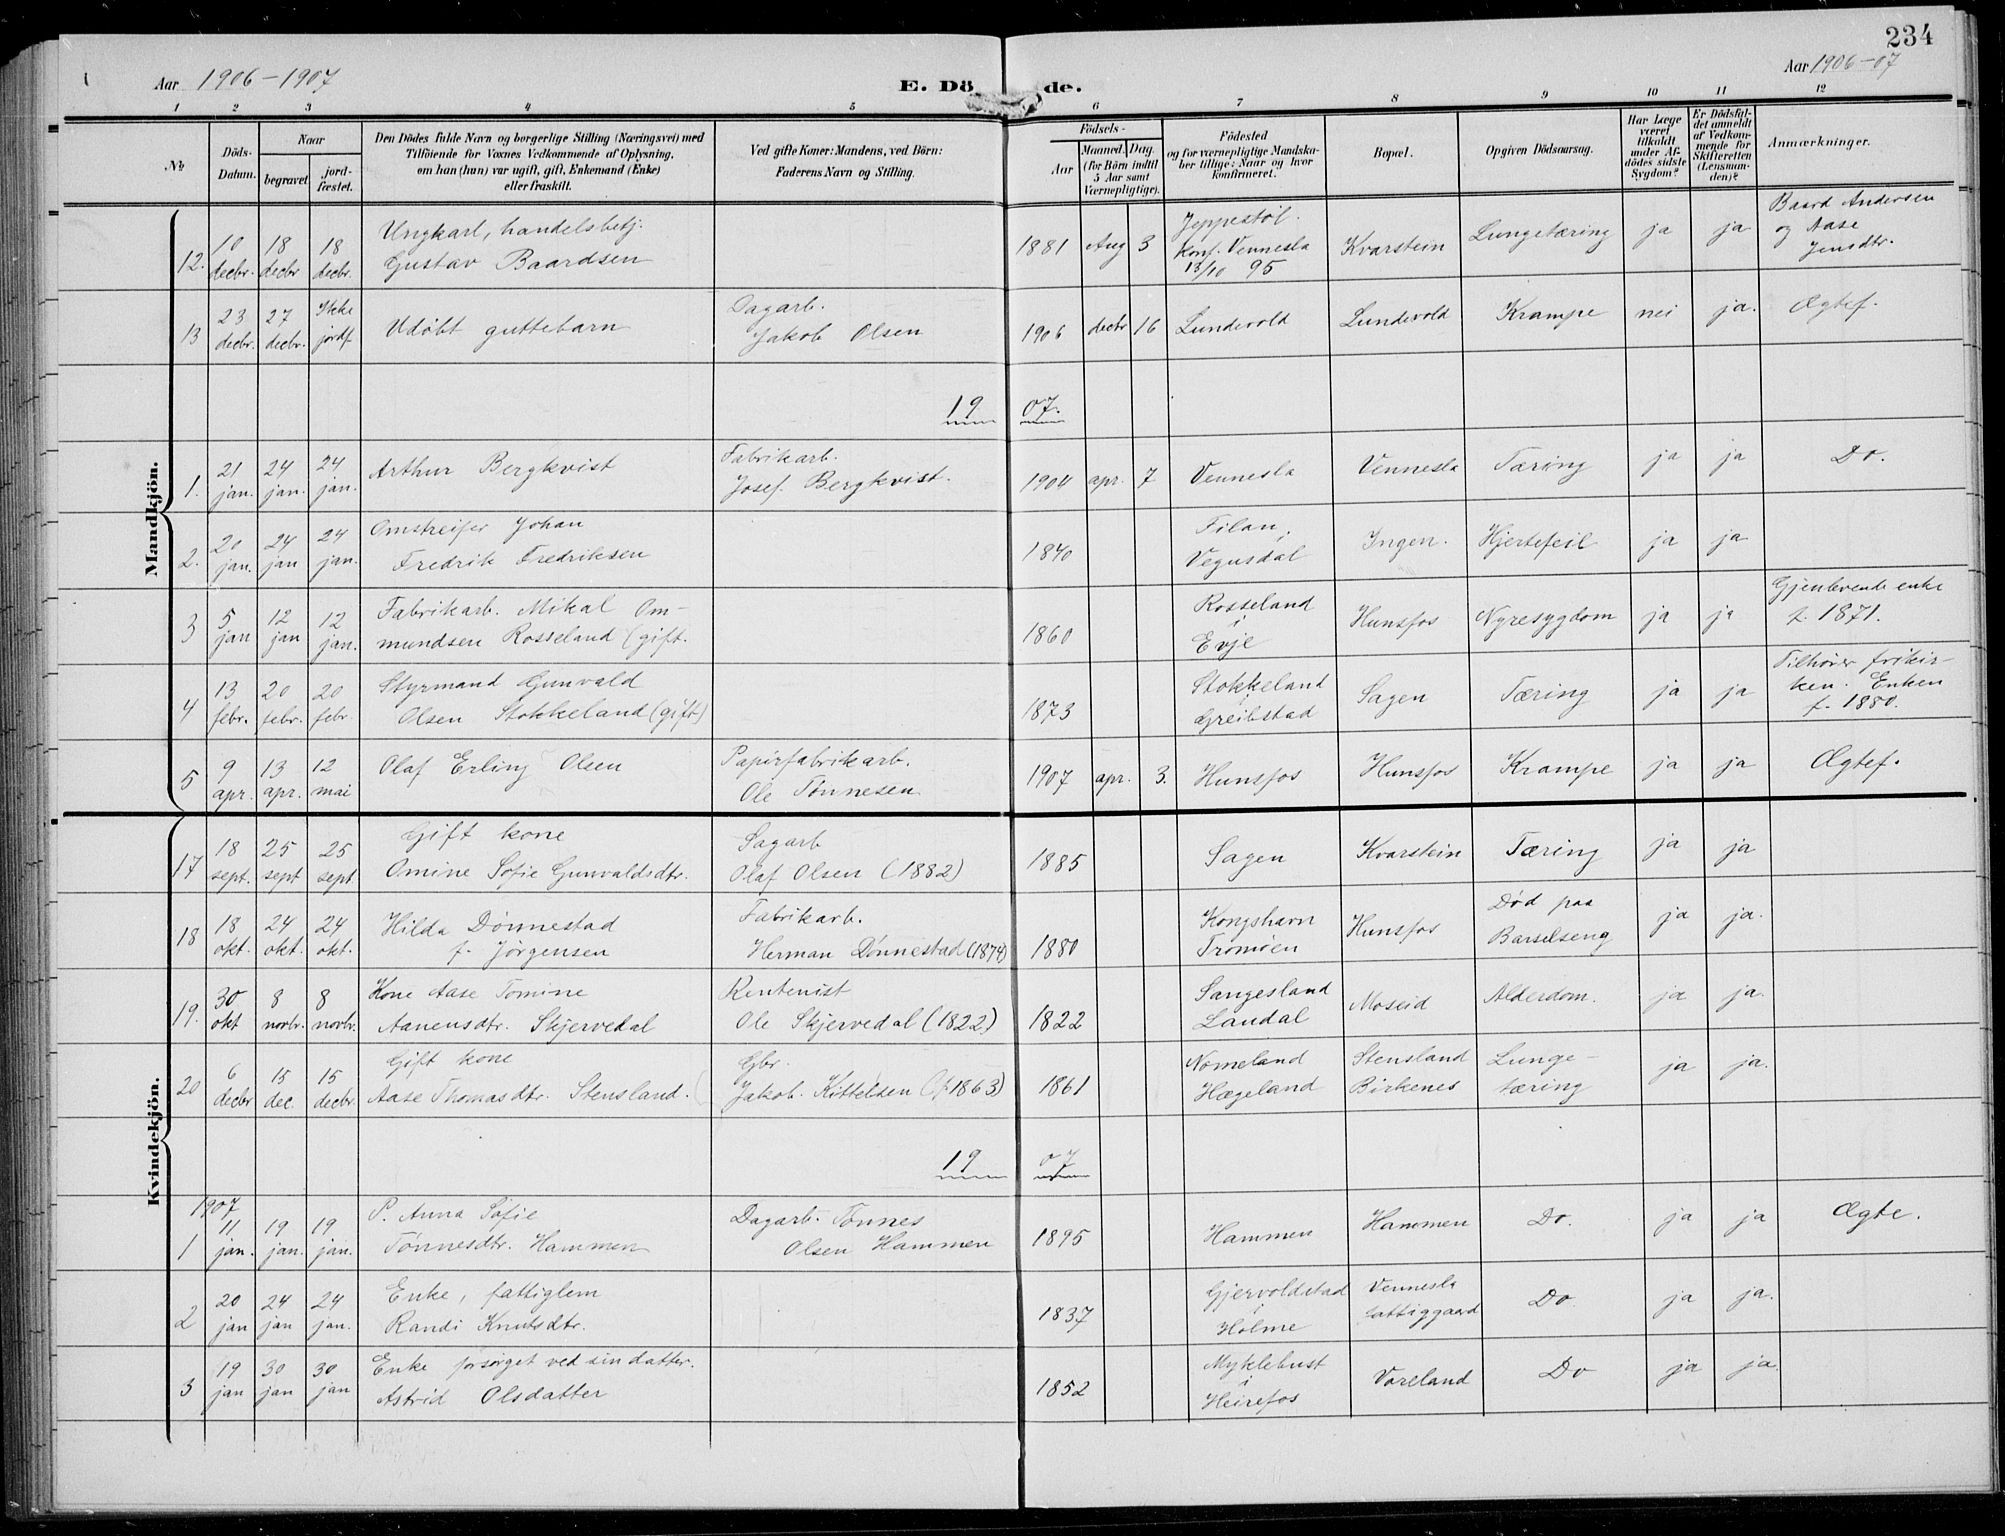 234
Aar 1906-1907
E. Dö de.
Aar 1906-07
1 2 3 4 5 6 7 8 9 10 11 12
No
Döds-Datum.
Naar
begravet
jord-fæstet.
Den Dödes fulde Navn og borgerlige Stilling (Næringsvei) med
Tilföiende for Voxnes Vedkommende af Oplysning,
om han (hun) var ugift, gift, Enkemand (Enke)
eller fraskilt.
Ved gifte Koner: Mandens, ved Börn:
Faderens Navn og Stilling.
Födsels-
Aar
Maaned. Dag.
(for Börn indtil
5 Aar samt
Værnepligtige).
Födested
og for værnepligtige Mandska-
ber tillige: Naar og hvor
konfirmeret.
Bopæl.
Opgiven Dödsaarsag.
Har Læge
været
tilkaldt
under Af-
dödes sidste
Sygdom?
Er Dödsfal-
det anmeldt
af Vedkom-
mende for
Skifteretten
(Lensman-
den)?
Anmærkninger.
Mandkjön.
12. 10 decbr. 18 decbr 18 decbr. Ungkarl, handelsbetj. Gustav Baardsen 1881 Aug 3 Jeppestøl. Konf. Vennesla 13/10 95 Kvarstein Lungetæring ja ja Baard Andersen og Aase Jensdtr.
13 23 decbr. 27 decbr. Ikke jordf. Udøbt guttebarn Dagarb. Jakob Olsen 1906 decbr 16 Lundevold Lundevold Krampe nei ja. Ægtef.
19 07.
1. 21 jan. 24 jan. 24 jan. Arthur Bergkvist Fabrikarb. Josef Bergkvist. 1904 apr. 7 Vennesla Vennesla Tæring ja ja Do.
2. 20 jan. 24 jan 24 jan. Omstreifer Johan Fredrik Fredriksen 1840 Filan, Vegusdal Ingen. Hjertefeil ja ja
3 5 jan 12 jan 12 jan. Fabrikarb. Mikal Om-
mundsen Rosseland (gift. 1860 Rosseland i Evje Hunsfos Nyresygdom ja ja Gjenlevende enke f. 1871.
4 13 febr. 20 febr. 20 febr. Styrmand Gunvald Olsen Stokkeland (gift) 1873 Stokkeland Greibstad Sagen Tæring ja ja Tilhører frikir-
ken. Enken f. 1880.
5 9 apr. 13 apr. 12 mai Olaf Erling Olsen Papirfabrikarb. Ole Tønnesen 1907 apr. 3. Hunsfos Hunsfos Krampe ja ja Ægtef.
Kvindekjön.
17 18 sept. 25 sept 25 sept. Gift kone Omine Sofie Gunvaldsdtr. Sagarb Olaf Olsen (1882) 1885 Sagen Kvarstein Tæring ja ja
18 18 okt. 24 okt. 24 okt. Hilda Dønnestad f. Jørgensen Fabrikarb. Herman Dønnestad (1874) 1880 Kongshavn Tromøen Hunsfos Død paa Barselseng ja ja.
19. 30 okt 8 novbr. 8 novbr. Kone Aase Tomine Aanensdtr. Skjervedal Rentenist Ole Skjervedal (1822) 1822 Sangesland Laudal Moseid Alderdom. ja ja.
20 6 decbr 15 dec. 15 decbr. Gift kone Aase Thomasdtr. Stensland. Gbr. Jakob Kittelsen (f 1863) 1861 Nomeland Hægeland Stensland Birkenes Lunge-
tæring ja ja.
19 07
1907
1 11 jan. 19 jan. 19 jan. P. Anna Sofie Tønnesdtr. Hammen Dagarb. Tønnes Olsen Hammen 1895 Hammen Hammen Do. ja ja Ægte.
2 20 jan 24 jan 24 jan. Enke, fattiglem Randi Knutsdtr. 1837 Gjervoldstad i Holme Vennesla fattiggaard Do ja ja.
3 19 jan 30 jan 30 jan Enke forsørget ved sin datter. Astrid Olsdatter 1852 Myklebust i Heirefos Voreland Do ja ja